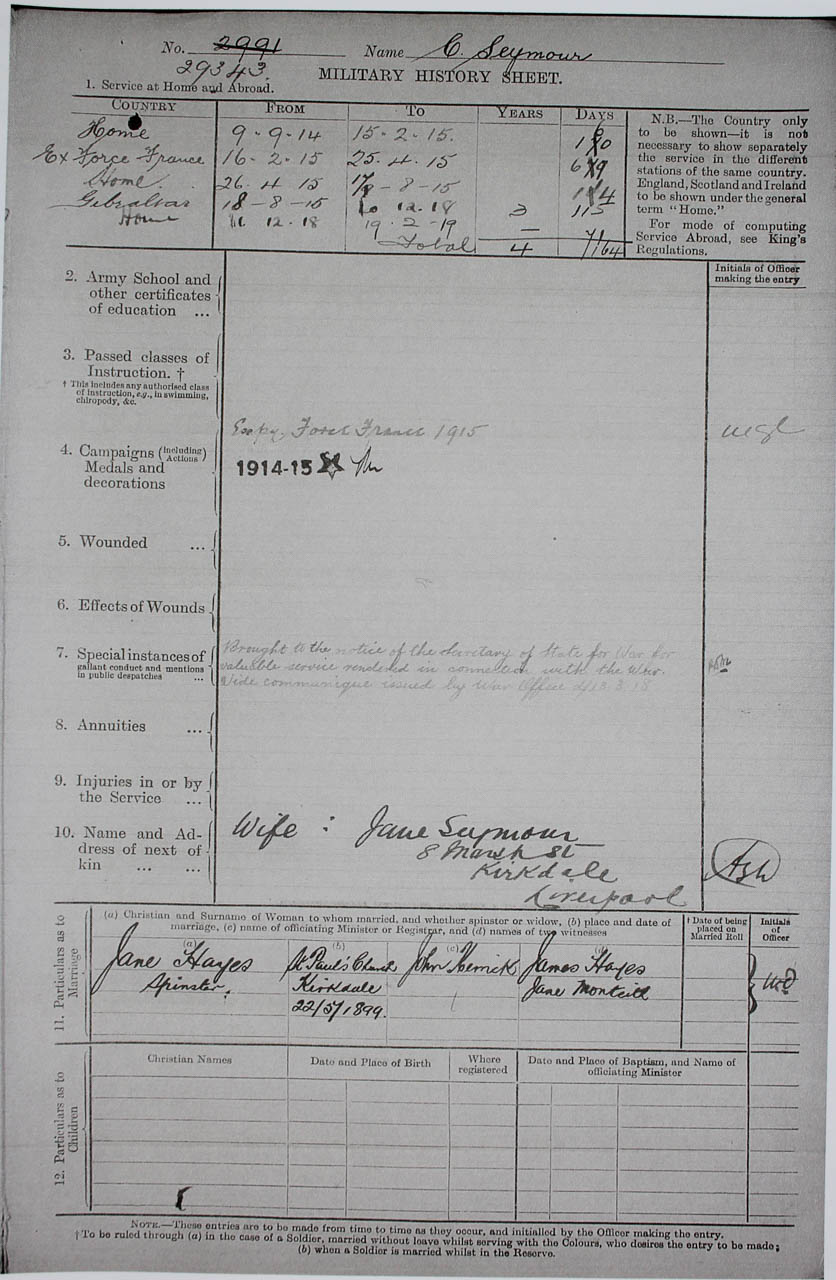 No. 2991 Name C. Seymour
29343.
MILITARY HISTORY SHEET.
1. Service at Home and Abroad.
COUNTRY FROM TO YEARS DAYS
Home 9-9-14 15-2-15.
Ex Force France 16-2-15 25-4-15
Home. 26-4-15 -8-15
Gibraltar 18-8-15 10 12.18 3 115
Home 11 12.18 19-2-19 — 71
Total 4 164
N.B.—The Country only
to be shown—it is not
necessary to show separately
the service in the different
stations of the same country.
England, Scotland and Ireland
to be shown under the general
term "Home."
For mode of computing
Service Abroad, see King's
Regulations.
Initials of Officer
making the entry
2. Army School and
other certificates
of education ...
3. Passed classes of
Instruction. †
† This includes any authorised class
of instruction, e.g., in swimming,
chiropody, &c.
Force France 1915
4. Campaigns (including Actions)
Medals and
decorations
1914-15
5. Wounded ...
6. Effects of Wounds
7. Special instances of
gallant conduct and mentions
in public despatches ...
Brought to the notice of the Secretary of State for War for
valuable service rendered in connection with the War.
Vide communique issued by War Office
8. Annuities ...
9. Injuries in or by
the Service ...
10. Name and Ad-
dress of next of
kin ... ...
Wife : Jane Seymour
8 Marsh St
Kirkdale
Liverpool
11. Particulars as to
Marriage
(a) Christian and Surname of Woman to whom married, and whether spinster or widow, (b) place and date of
marriage, (c) name of officiating Minister or Registrar, and (d) names of two witnesses
† Date of being
placed on
Married Roll
Initials
of
Officer
(a) (b) (c) (d)
Jane Hayes St Paul's Church John Herrick James Hayes
Spinster. Kirkdale Jane Monteith
22/5/1899.
12. Particulars as to
Children
Christian Names
Date and Place of Birth
Where
registered
Date and Place of Baptism, and Name of
officiating Minister
NOTE.—These entries are to be made from time to time as they occur, and initialled by the Officer making the entry.
† To be ruled through (a) in the case of a Soldier, married without leave whilst serving with the Colours, who desires the entry to be made;
(b) when a Soldier is married whilst in the Reserve.